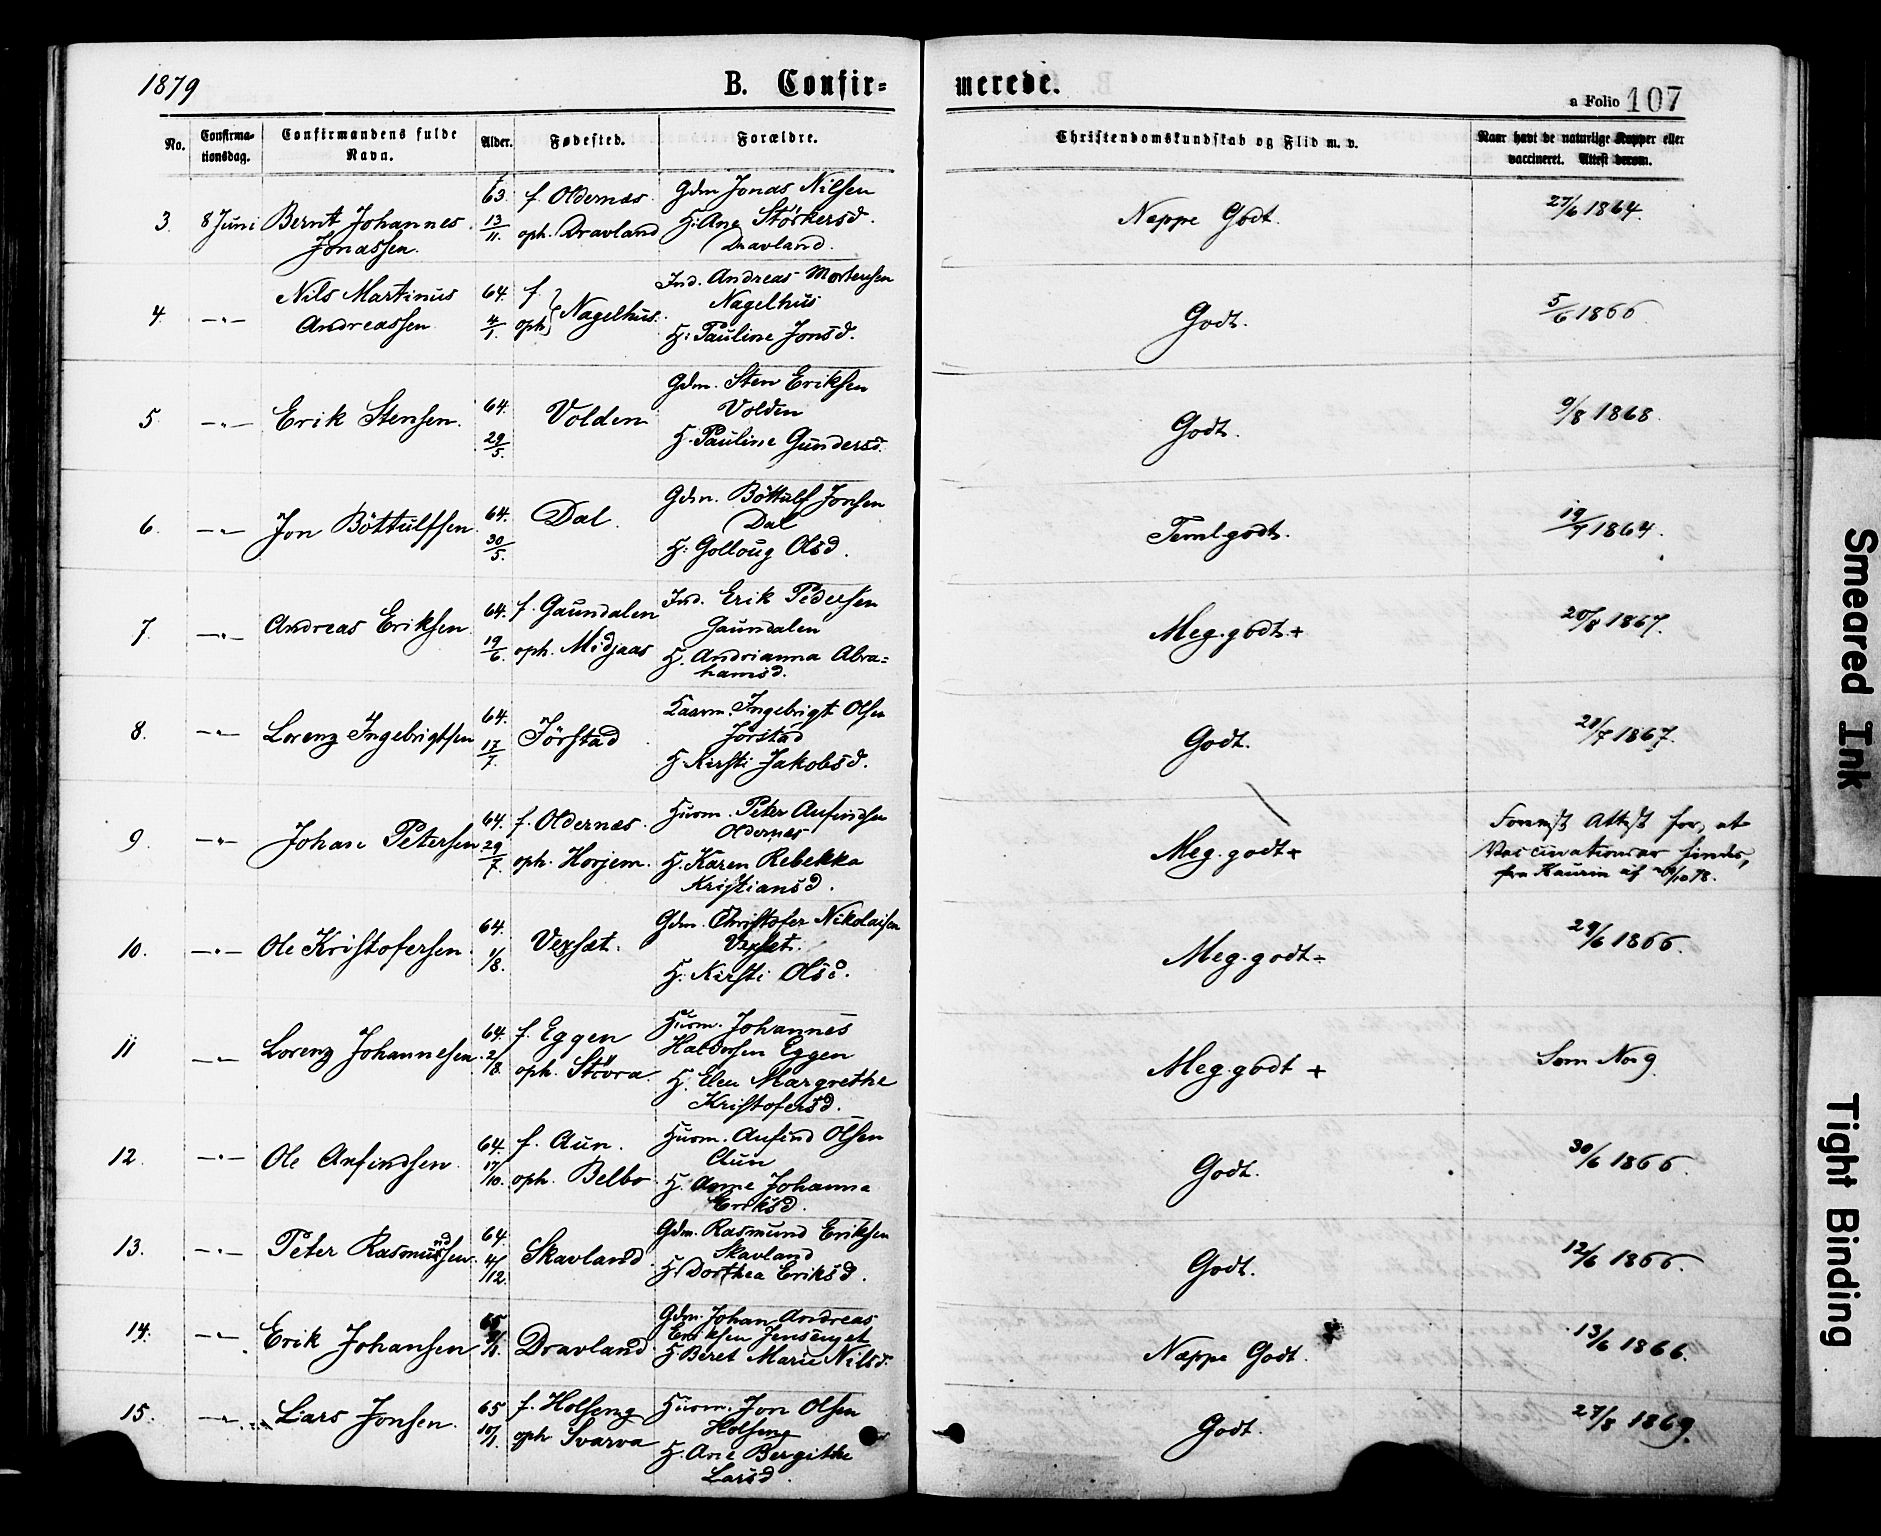 1879
B. Confir=
merede.
a Folio 107
No.
Confirma-
tionsdag.
Confirmandens fulde
Navn.
Alder.
Fødested.
Forældre.
Christendomskundskab og Flid m. v.
Naar havt de naturlige Kopper eller
vaccineret. Attest derom.
3. 8 Juni Bernt Johannes
Jonassen.
63.
13/11.
f. Oldernæs.
oph. Dravland
Gdm Jonas Nilsen
H: Ane Störkersd.
Dravland.
Næppe Godt.
27/6 1864.
4. -"- Nils Martinus
Andreassen
64.
4/7.
f.
oph. Nagelhus.
Ind. Andreas Mortensen
Nagelhus
H: Pauline Jonsd.
Godt.
5/6 1866.
5. -"- Erik Stensen.
64.
29/5.
Volden
Gdm. Sten Eriksen
Volden
H. Pauline Gundersd.
Godt.
9/8 1868.
6. -"- Jon Böttulfsen
64.
30/5.
Dal.
Gdm. Böttulf Jonsen
Dal
H: Golloug Olsd.
Teml. godt.
19/7 1864.
7. -"- Andreas Eriksen
64.
19/6.
f. Gaundalen
oph. Midjaas
Ind. Erik Pedersen
Gaundalen
H. Andrianna Abra=
hamsd.
Meg. godt. +
20/8 1867.
8. -"- Lorenz Ingebrigtsen
64.
17/7.
Jörstad
Ingebrigt Olsen
Jörstad
H. Kirsti Jakobsd.
Godt.
21/7 1867.
9. -"- Johan Petersen
64.
29/7.
f. Oldernæs.
oph. Horjem.
Husm. Peter Anfindsen
Oldernæs
H. Karen Rebekka
Kristiansd.
Meg. godt +
Forevist Attest for, at
Vaccinationsar findes,
fra Kaurin af
10. -"- Ole Kristofersen.
64.
1/8.
Vexsæt.
Gdm. Christofer Nikolaisen
Vexsæt.
H. Kirsti Olsd.
Meg. godt ÷
29/6 1866.
11 -"- Lorenz Johannesen
64.
2/8.
f. Eggen
oph. Stövra.
Husm. Johannes
Haldorsen Eggen
H. Elen Margrethe
Kristofersd.
Meg. godt +
Som No 9.
12. -"- Ole Anfindsen.
64.
17/10.
f. Aun.
oph. Belbo
Husm. Anfind Olsen
Aun
H. Anne Johanna
Eriksd.
Godt.
30/6 1866.
13. -"- Peter Rasmundsen.
64.
4/12.
Skavland
Gdm. Rasmund Eriksen
Skavland
H. Dorthea Eriksd.
Godt.
12/6 1866.
14. -"- Erik Johansen
65
Dravland
Gdm. Johan Andreas
Eriksen Jensenget
H. Beret Marie Nilsd.
Næppe Godt.
13/6 1866.
15. -"- Lars Jonsen.
65
10/1.
f. Holseng
oph Svarva
Husm. Jon Olsen
Holseng
H. Ane Bergithe
Larsd.
Godt.
27/8 1869.
Smeared Ink
Tight Binding